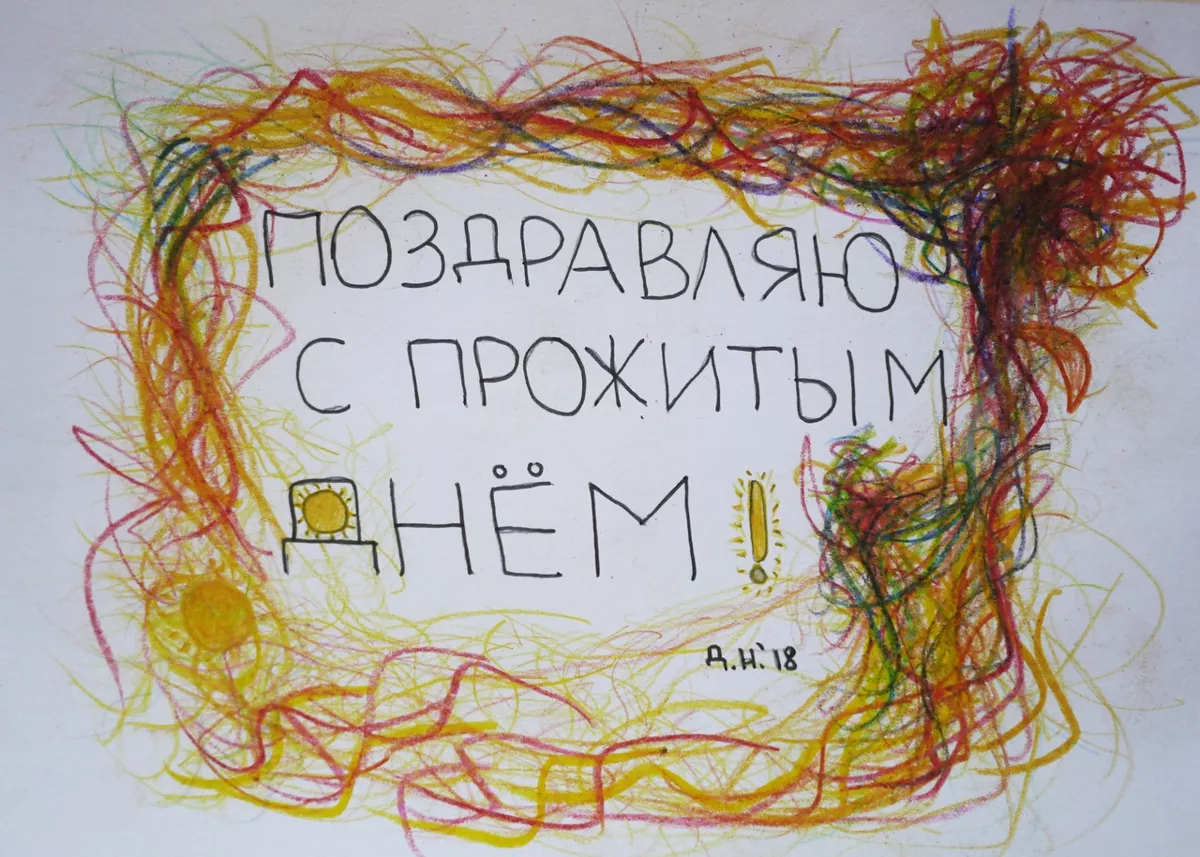 ПОЗДРАВЛЯЮ
С ПРОЖИТЫМ
ДНЁМ!
Д.Н.'18